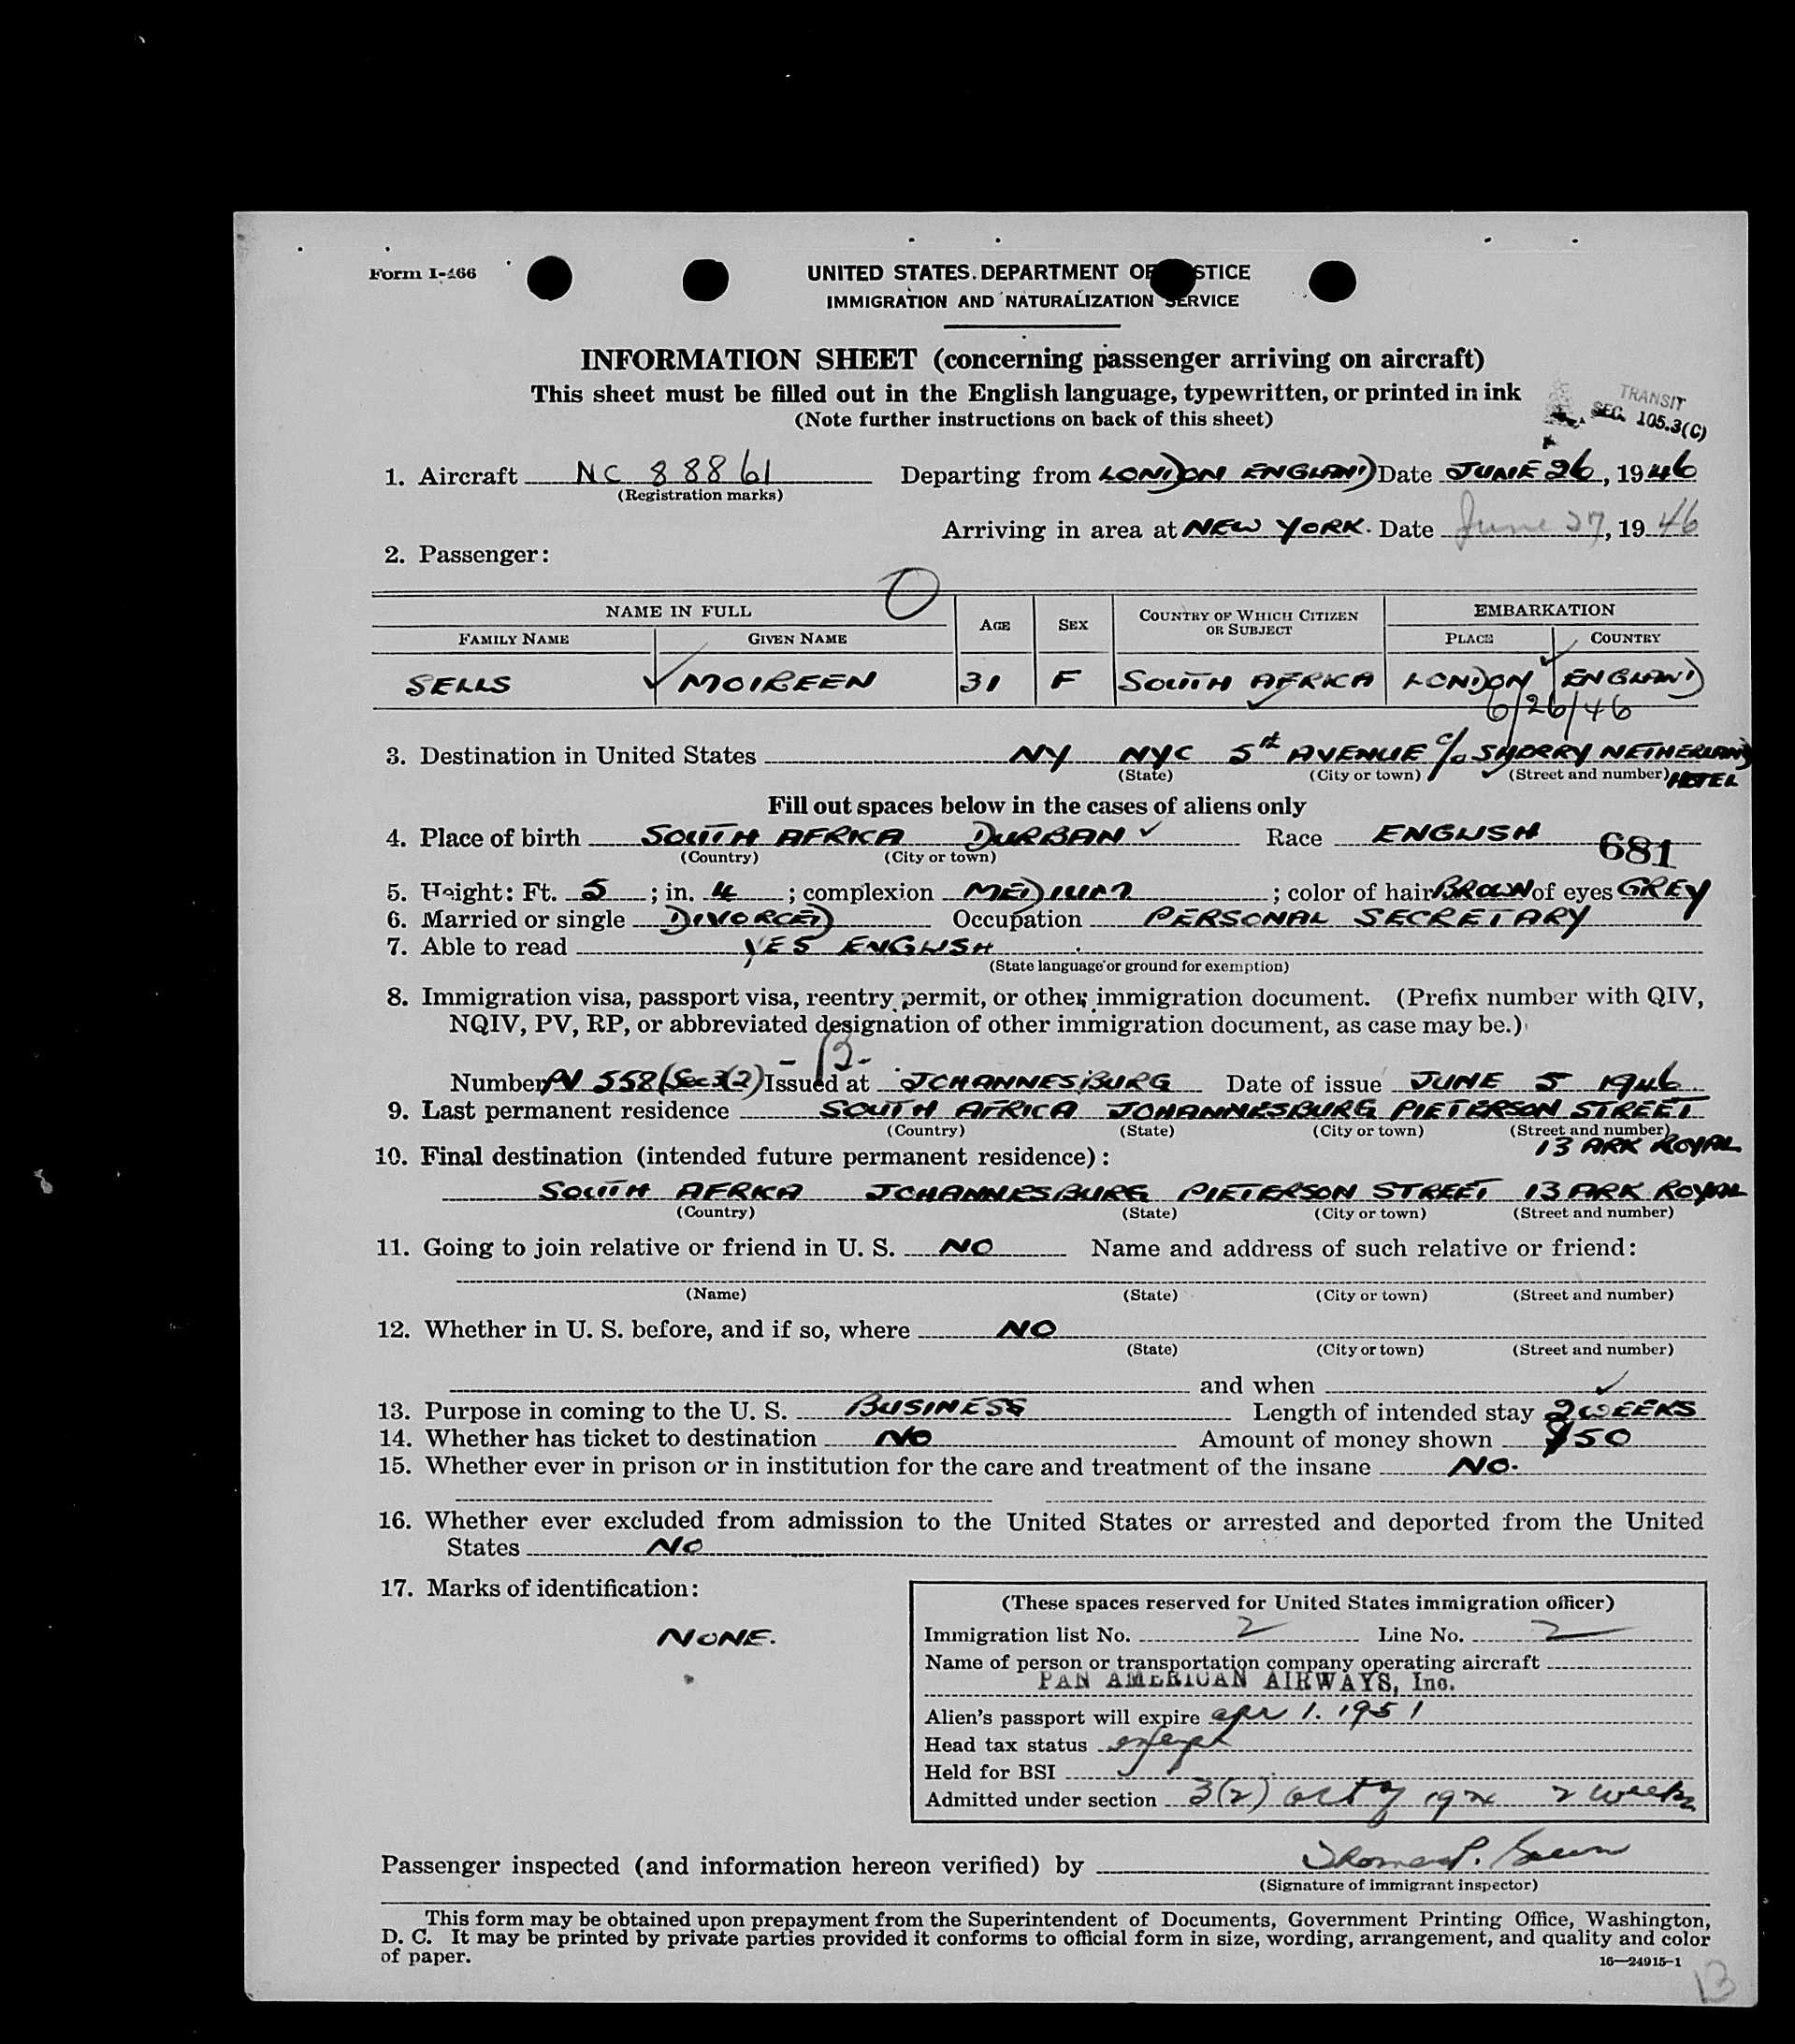 Form I-466
UNITED STATES DEPARTMENT OF STICE
IMMIGRATION AND NATURALIZATION SERVICE
INFORMATION SHEET (concerning passenger arriving on aircraft)
This sheet must be filled out in the English language, typewritten, or printed in ink
(Note further instructions on back of this sheet)
TRANSIT
SEC. 105.3(C)
1. Aircraft NC 88861 Departing from LONDON ENGLAND Date JUNE 26, 1946
(Registration marks)
Arriving in area at NEW YORK. Date June 27, 1946
2. Passenger:
NAME IN FULL AGE SEX COUNTRY OF WHICH CITIZEN OR SUBJECT EMBARKATION
FAMILY NAME GIVEN NAME PLACE COUNTRY
SELLS MOIREEN 31 F SOUTH AFRICA LONDON ENGLAND
6/26/46
3. Destination in United States NY NYC 5th AVENUE c/o SHERRY NETHERLAND
(State) (City or town) (Street and number) HOTEL
Fill out spaces below in the cases of aliens only
4. Place of birth SOUTH AFRICA DURBAN Race ENGLISH
(Country) (City or town) 681
5. Height: Ft. 5; in. 4; complexion MEDIUM; color of hair BROWN of eyes GREY
6. Married or single DIVORCED Occupation PERSONAL SECRETARY
7. Able to read YES ENGLISH
(State language or ground for exemption)
8. Immigration visa, passport visa, reentry permit, or other immigration document. (Prefix number with QIV,
NQIV, PV, RP, or abbreviated designation of other immigration document, as case may be.)
Number PV 558 (Sec 3(2) Issued at JOHANNESBURG Date of issue JUNE 5 1946
9. Last permanent residence SOUTH AFRICA JOHANNESBURG PIETERSON STREET
(Country) (State) (City or town) (Street and number)
13 ARK ROYAL
10. Final destination (intended future permanent residence):
SOUTH AFRICA JOHANNESBURG PIETERSON STREET 13 ARK ROYAL
(Country) (State) (City or town) (Street and number)
11. Going to join relative or friend in U. S. NO Name and address of such relative or friend:
(Name) (State) (City or town) (Street and number)
12. Whether in U. S. before, and if so, where NO
(State) (City or town) (Street and number)
and when
13. Purpose in coming to the U. S. BUSINESS Length of intended stay 2 WEEKS
14. Whether has ticket to destination NO Amount of money shown $50
15. Whether ever in prison or in institution for the care and treatment of the insane NO.
16. Whether ever excluded from admission to the United States or arrested and deported from the United
States NO
17. Marks of identification:
NONE.
(These spaces reserved for United States immigration officer)
Immigration list No. 2 Line No. 2
Name of person or transportation company operating aircraft
PAN AMERICAN AIRWAYS, Inc.
Alien's passport will expire apr 1. 1951
Head tax status exempt
Held for BSI
Admitted under section 3(2) act of 1924 2 weeks
Passenger inspected (and information hereon verified) by Thomas P.
(Signature of immigrant inspector)
This form may be obtained upon prepayment from the Superintendent of Documents, Government Printing Office, Washington,
D. C. It may be printed by private parties provided it conforms to official form in size, wording, arrangement, and quality and color
of paper.
16—24915-1
13